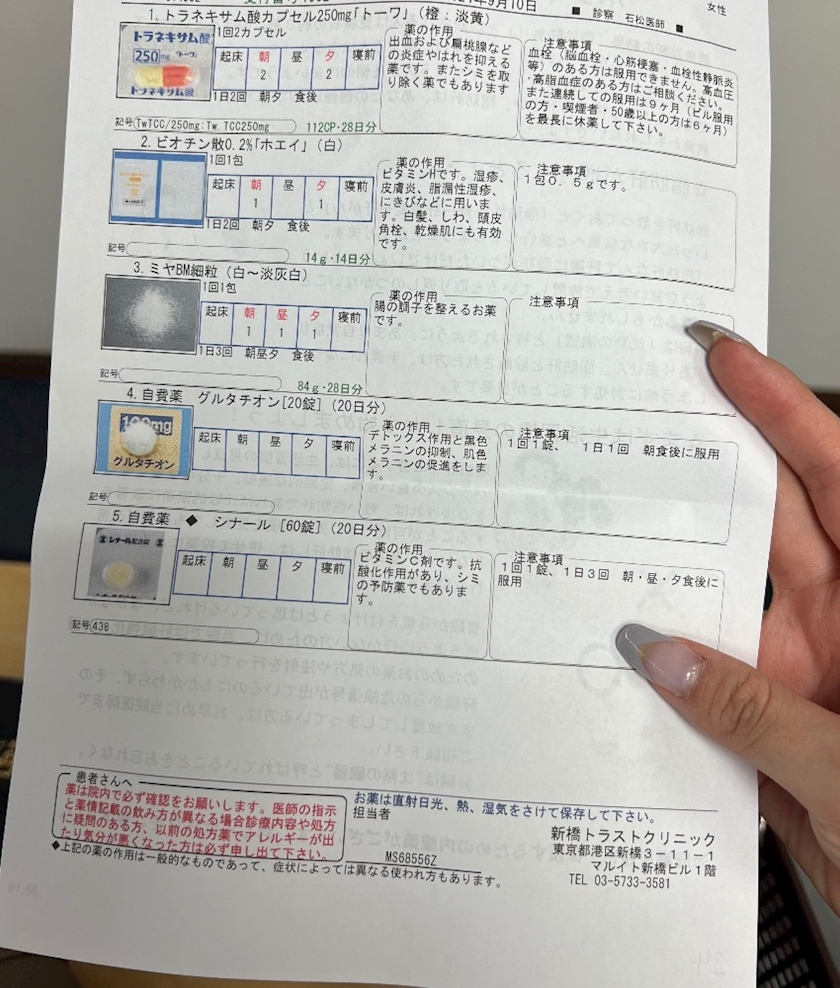 月10日
■ 診察 石松医師 ■
女性
1. トラネキサム酸カプセル250mg「トーワ」(橙:淡黄)
トラネキサム酸
250mg トーワ
トラネキサム酸
1回2カプセル
起床 朝 昼 夕 寝前
2 2
1日2回 朝夕 食後
記号 TwTCC/250mg:Tw.TCC250mg
112CP・28日分
薬の作用
出血および扁桃腺など
の炎症やはれを抑える
薬です。またシミを取
り除く薬でもあります
注意事項
血栓(脳血栓・心筋梗塞・血栓性静脈炎
等)のある方は服用できません。高血圧
・高脂血症のある方はご相談ください。
また連続しての服用は9ヶ月(ピル服用
の方・喫煙者・50歳以上の方は6ヶ月)
を最長に休薬して下さい。
2. ビオチン散0.2%「ホエイ」(白)
1回1包
起床 朝 昼 夕 寝前
1 1
1日2回 朝夕 食後
記号
14g・14日分
薬の作用
ビタミンHです。湿疹、
皮膚炎、脂漏性湿疹、
にきびなどに用いま
す。白髪、しわ、頭皮
角栓、乾燥肌にも有効
です。
注意事項
1包0.5gです。
3. ミヤBM細粒(白~淡灰白)
1回1包
起床 朝 昼 夕 寝前
1 1 1
1日3回 朝昼夕 食後
記号
84g・28日分
薬の作用
腸の調子を整えるお薬
です。
注意事項
4. 自費薬 グルタチオン[20錠](20日分)
100mg
グルタチオン
起床 朝 昼 夕 寝前
記号
薬の作用
デトックス作用と黒色
メラニンの抑制、肌色
メラニンの促進をしま
す。
注意事項
1回1錠、 1日1回 朝食後に服用
5. 自費薬 ◆ シナール[60錠](20日分)
起床 朝 昼 夕 寝前
記号 438
薬の作用
ビタミンC剤です。抗
酸化作用があり、シミ
の予防薬でもありま
す。
注意事項
1回1錠、1日3回 朝・昼・夕食後に
服用
患者さんへ
薬は院内で必ず確認をお願いします。医師の指示
と薬情記載の飲み方が異なる場合診療内容や処方
に疑問のある方、以前の処方薬でアレルギーが出
たり気分が悪くなった方は必ず申し出て下さい。
お薬は直射日光、熱、湿気をさけて保存して下さい。
担当者
MS68556Z
◆上記の薬の作用は一般的なものであって、症状によっては異なる使われ方もあります。
新橋トラストクリニック
東京都港区新橋3-11-1
マルイト新橋ビル1階
TEL 03-5733-3581